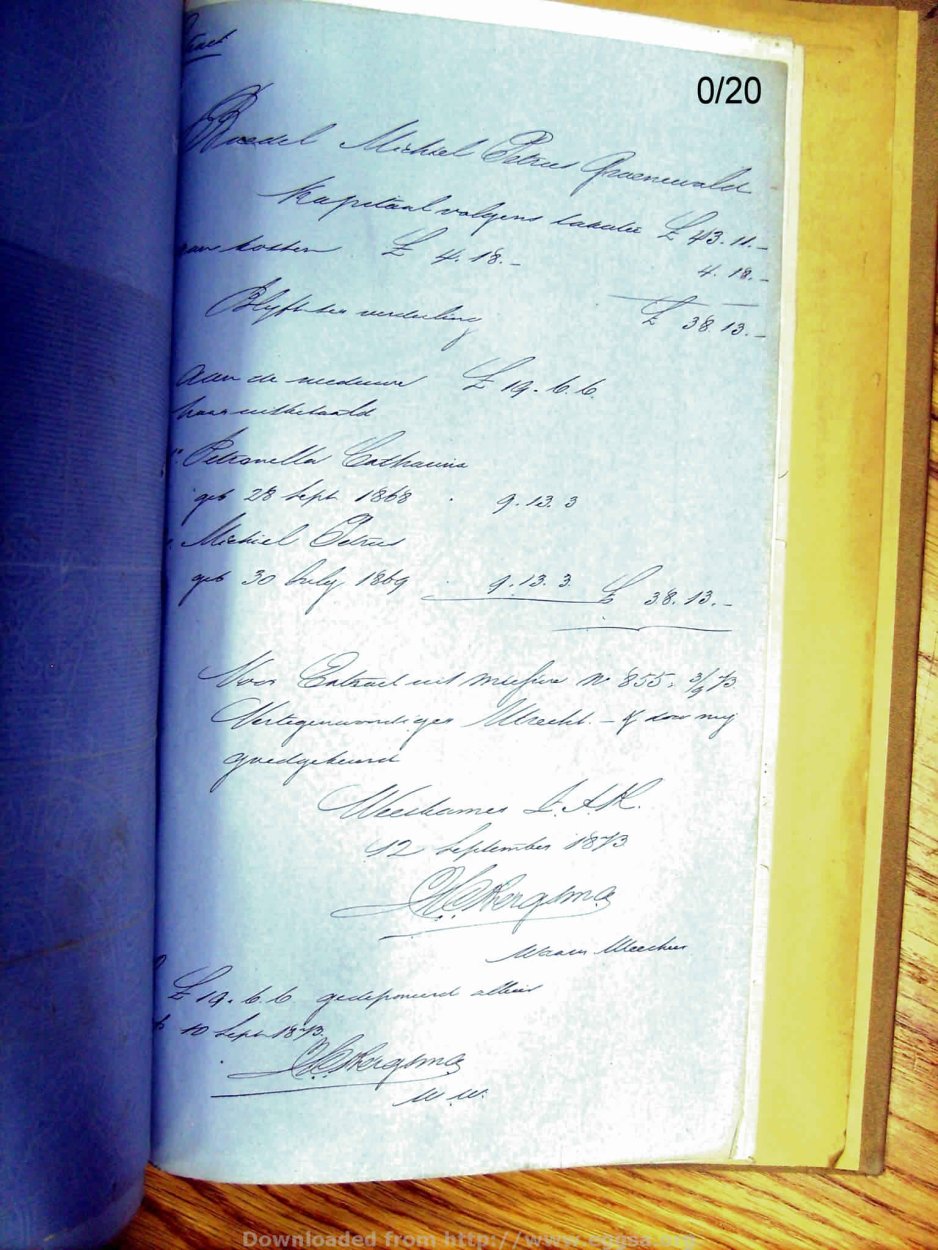 0/20
Boedel Michiel Petrus Groenewald
Kapitaal volgens £ 43.11.-
aan kosten £ 4.18.- 4.18.-
Blyft ter verdeeling £ 38.13.-
Aan de weduwe £ 19.6.6
haar uitbetaald
Petronella Catharina
geb 28 Sept 1868 . 9.13.3
Michiel Petrus
geb 30 July 1869 . 9.13.3 £ 38.13.-
Voor Extract uit missive No 855, 3/9/73
Vertegenwoordiger Utrecht. - & door my
goedgekeurd
Weeskamer Z.A.R.
12 September 1873
Bergsma
Waarn Weeshr
£ 19.6.6 gedeponeerd alhier
10 Sept 1873.
Bergsma
W.W.
Downloaded from http://www.eggsa.org